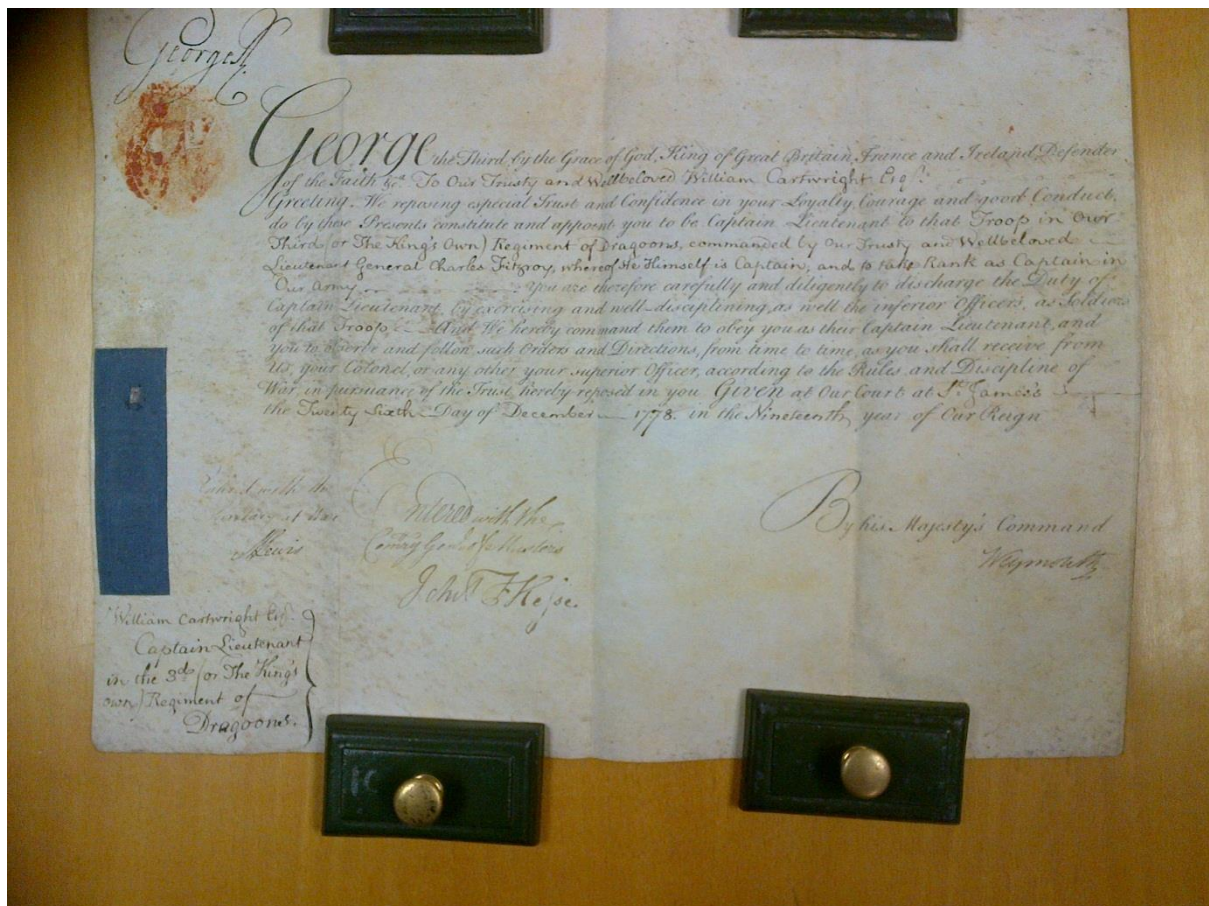 George R.
George the Third, by the Grace of God, King of Great Britain, France and Ireland, Defender
of the Faith &c.a To Our Trusty and Wellbeloved William Cartwright Esq.r
Greeting. We reposing especial Trust and Confidence in your Loyalty, Courage and good Conduct,
do by these Presents constitute and appoint you to be Captain Lieutenant to that Troop in Our
Third (or The King's Own) Regiment of Dragoons, commanded by Our Trusty and Wellbeloved
Lieutenant General Charles Fitzroy, whereof He Himself is Captain, and to take Rank as Captain in
Our Army. You are therefore carefully and diligently to discharge the Duty of
Captain Lieutenant, by exercising and well-disciplining, as well the inferior Officers, as Soldiers
of that Troop And We hereby command them to obey you as their Captain Lieutenant, and
you to observe and follow such Orders and Directions, from time to time, as you shall receive from
Us, your Colonel, or any other your superior Officer, according to the Rules and Discipline of
War, in pursuance of the Trust hereby reposed in you Given at Our Court at St. James's
the Twenty Sixth Day of December 1778. in the Nineteenth year of Our Reign
By his Majesty's Command
Weymouth
Entered with the
Secretary at War
MLewis
Entered with the
Com̃ary Gen.l of ye Musters
John
William Cartwright Esq.r
Captain Lieutenant
in the 3.d (or The King's
own) Regiment of
Dragoons.